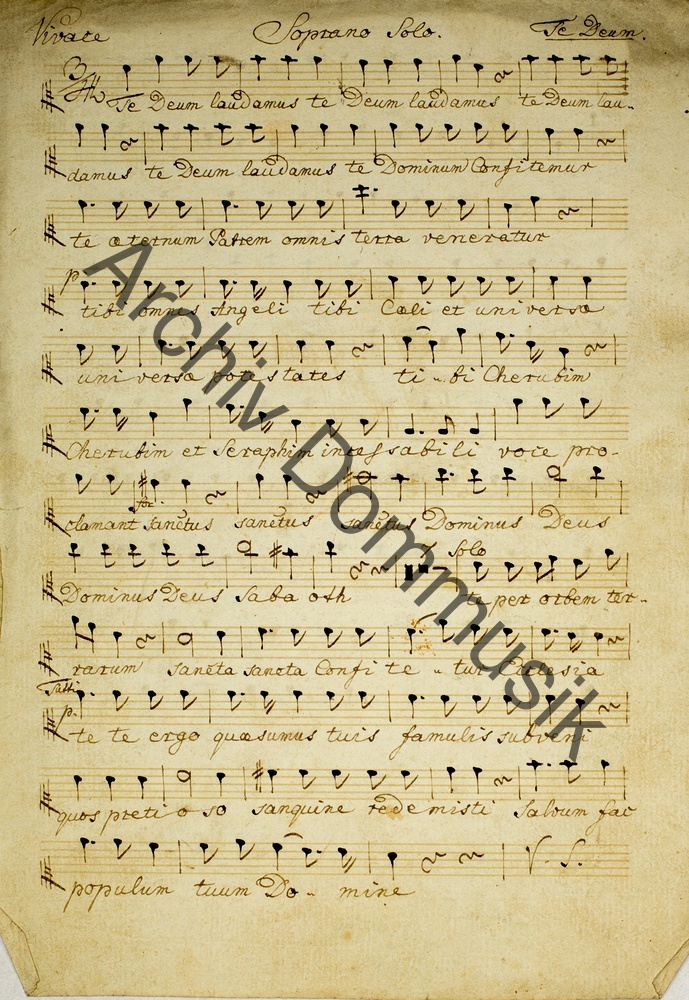 Vivace Soprano Solo. Te Deum.
Te Deum laudamus te Deum laudamus te Deum lau-
damus te Deum laudamus te Dominum Confitemur
te æternum Patrem omnis terra veneratur
p
tibi omnis Angeli tibi Cæli et universæ
universæ potestates ti-bi Cherubim
Cherubim et Seraphim incessabili voce pro-
for:
clamant sanctus sanctus sanctus Dominus Deus
4 Solo
Dominus Deus Saba oth te per orbem ter-
rarum sancta sancta Confite-tur Ecclesia
Tutti
p.
te te ergo quæsumus tuis famulis subveni
quos preti o so sanguine redemisti Salvum fac
V. S.
populum tuum Do-mine
Archiv Dommusik